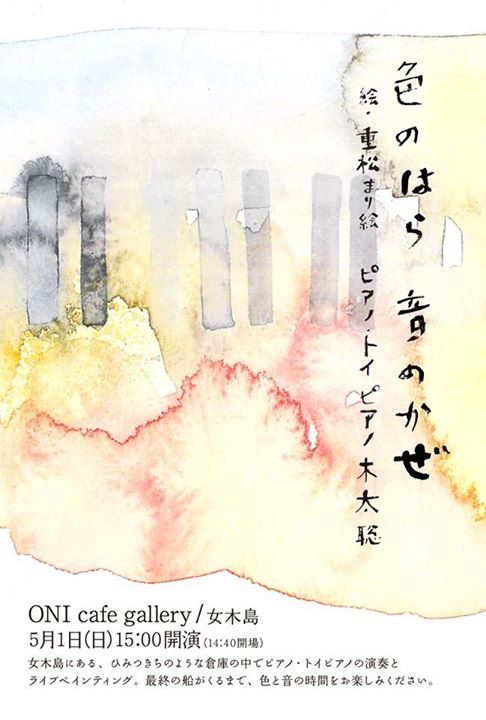 色のはら 音のかぜ
絵・重松まり絵 ピアノ・トイピアノ 木太聡
ONI cafe gallery/女木島
5月1日(日)15:00開演(14:40開場)
女木島にある、ひみつきちのような倉庫の中でピアノ・トイピアノの演奏と
ライブペインティング。最終の船がくるまで、色と音の時間をお楽しみください。